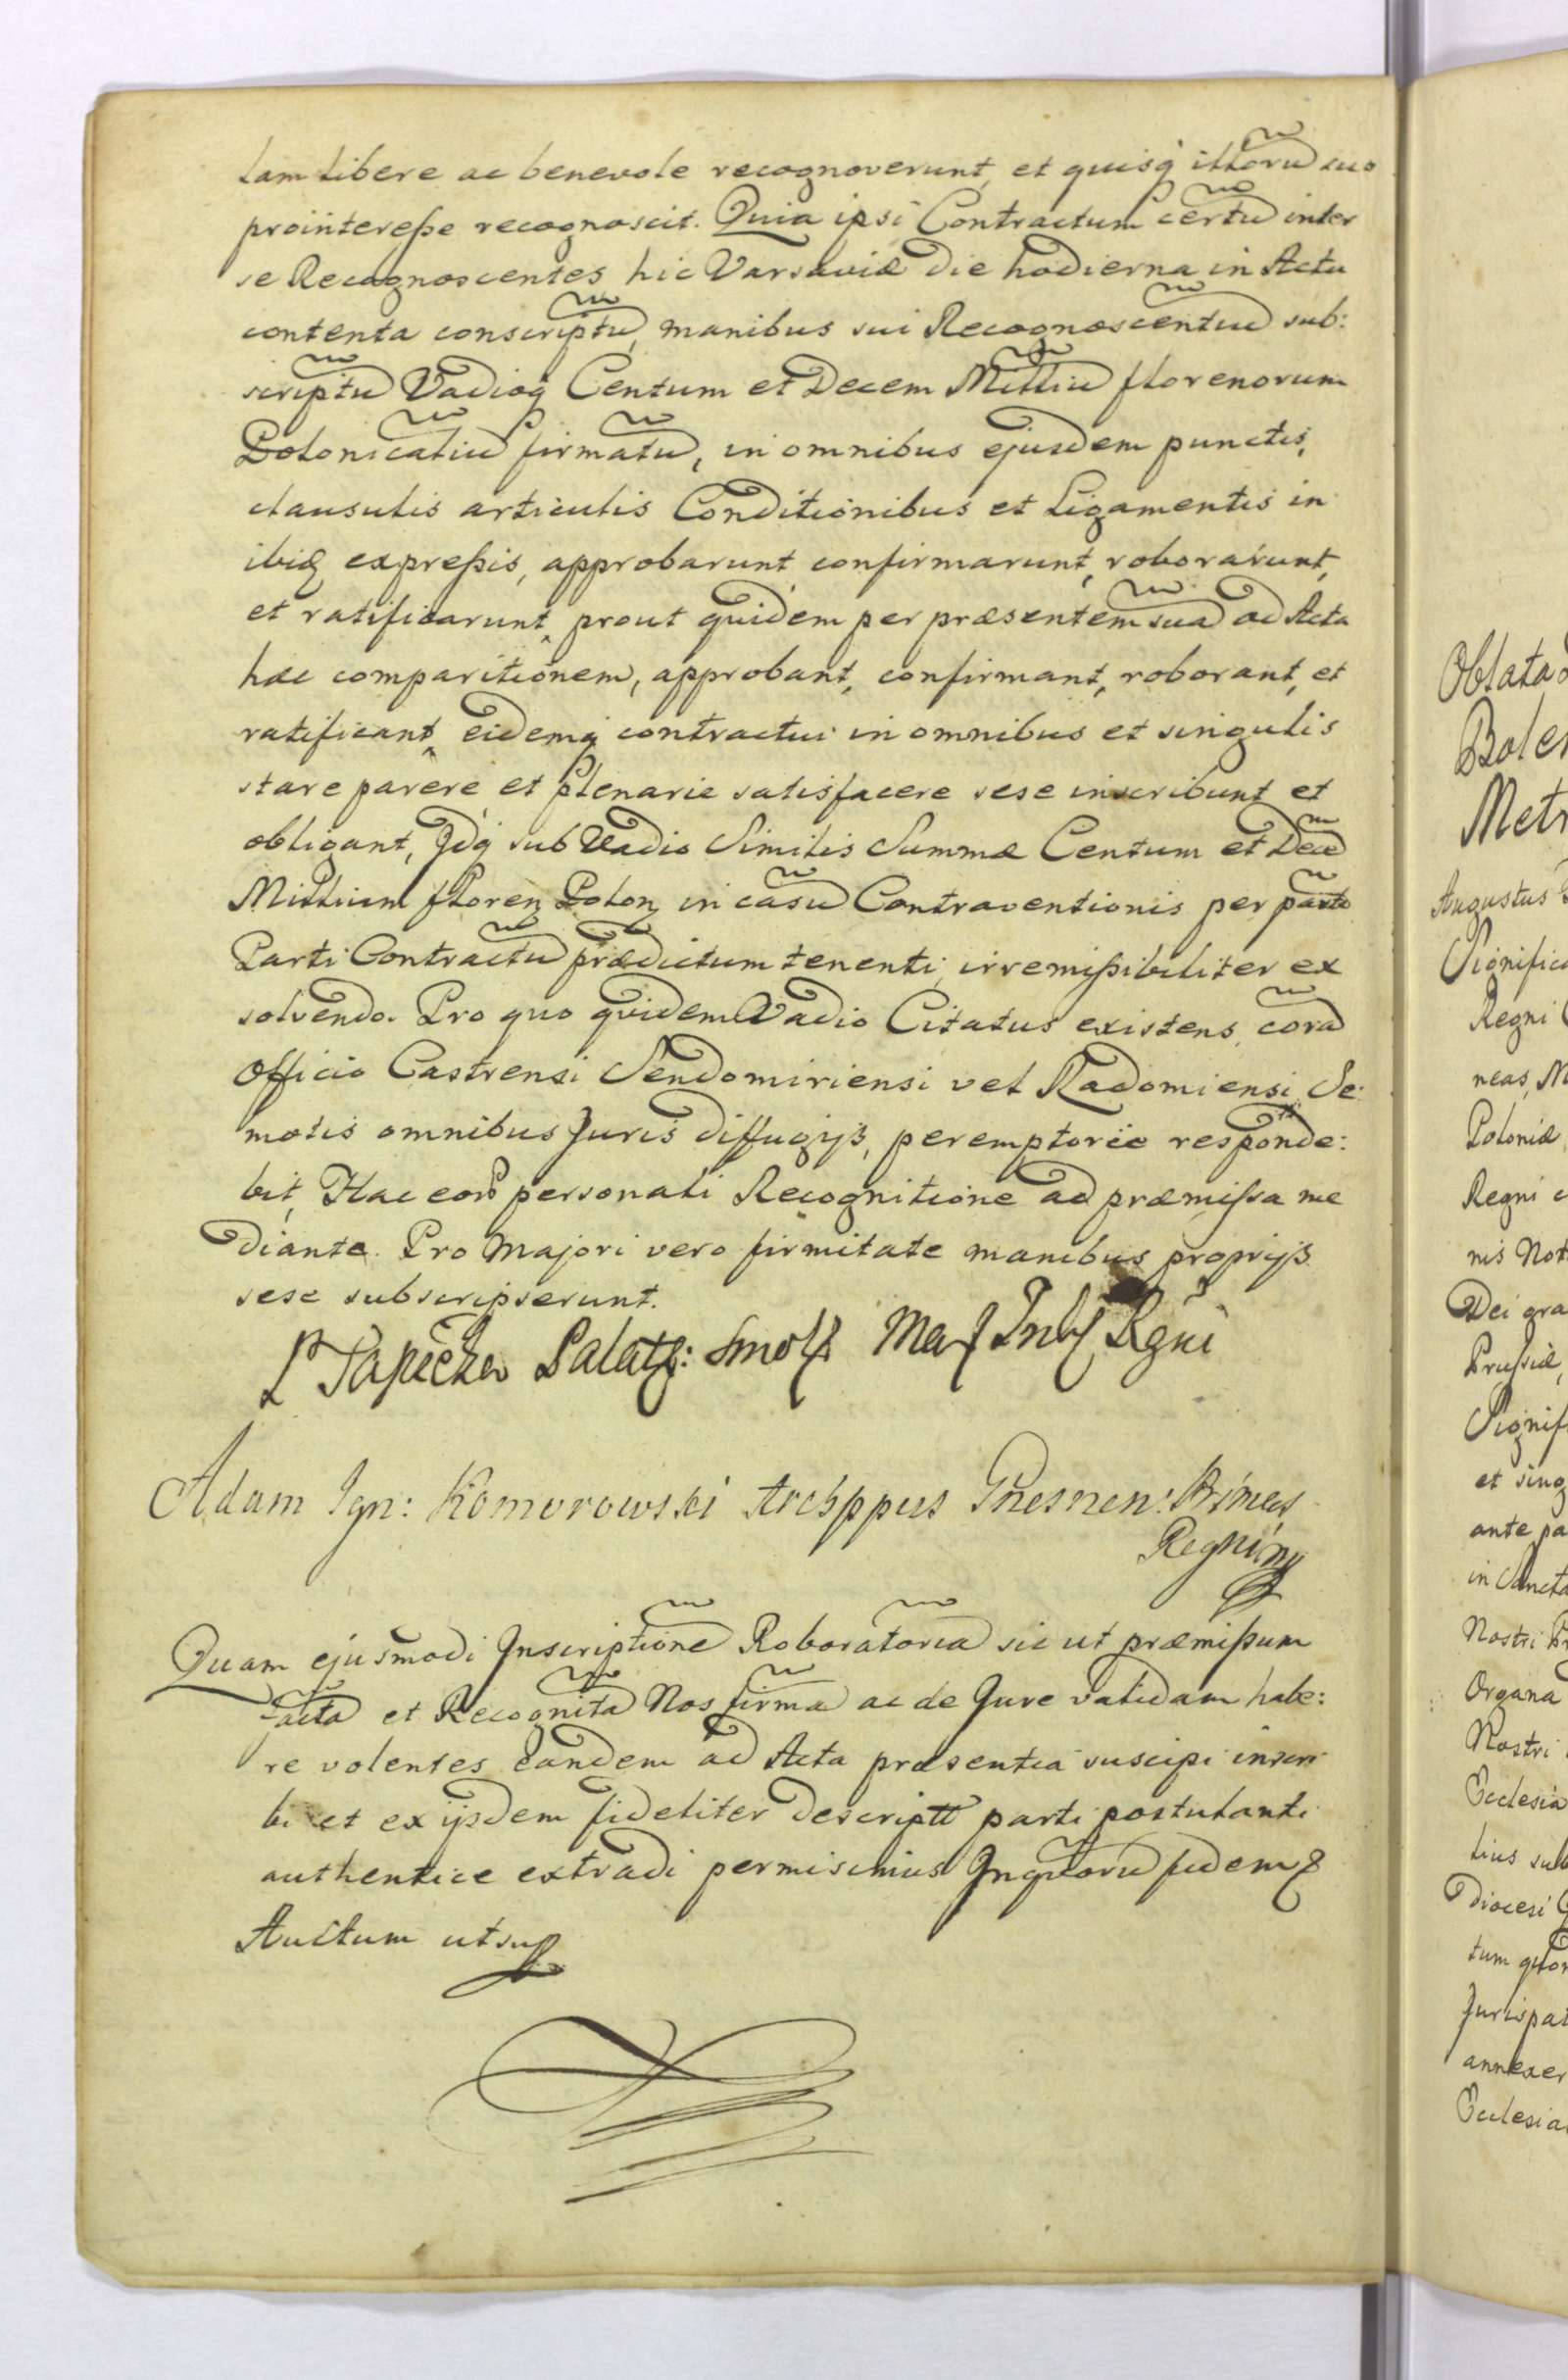 lam libere ac benevole recognoverunt, et quisq̃ illorũ suo
prointereße recognoscit. Quia ipsi Contractum certũ inter
se Recognoscentes hic Varsaviæ die hodierna in Actu
contenta conscriptũ, manibus sui Recognoscentiũ sub:
scriptũ Vadioq̃ Centum et Decem Milliũ florenorum
Polonicaliũ firmatũ, in omnibus ejusdem punctis,
clausulis articulis Conditionibus et Ligamentis in
ibiq̃ expreßis, approbarunt, confirmarunt, roborarunt,
et ratificarunt, prout quidem per præsentem suã ad Acta
hæc comparitionem, approbant, confirmant, roborant, et
ratificant, eidemq̃ contractui in omnibus et singulis
stare parere et plenarie satisfacere sese inscribunt et
obligant, Idq̃ sub Vadio Similis Summæ Centum et Decẽ
Millium floren Polon in casũ Contraventionis per partẽ
Parti Contractũ prædictum tenenti, irremißibiliter ex
solvendo. Pro quo quidem Vadio Citatus existens, corã
Officio Castrensi Sendomiriensi vel Radomiensi, Se:
motis omnibus Juris diffugijs, peremptorie responde:
bit, Hac eorũ personali Recognitione ad præmißa me
diante. Pro Majori vero firmitate manibus proprijs
sese subscripserunt.
Sapieha Palat: Smol Regni
Adam Ign: Komorowski Archppus Gnesnen: Primas
Regni
Quam ejusmodi Inscriptionẽ Roboratoriã sic ut præmißum
factã et Recognitã Nos firmã ac de Jure validam habe:
re volentes eandem ad Acta præsentia suscipi inscri
bi et ex ijsdem fideliter descriptt parti postulanti
authentice extradi permisimus Inquorũ fidem
Actum ut sup
Oblata
Boles
Metr
Augustus
Significa
Regni
neas, M
Poloniæ
Regni
nis Not
Dei gra
Prußiæ,
Signif
et sing
ante pa
in Sancta
Nostri
Organa
Nostri
Ecclesia
lius sub
Diocesi
tum quor
Jurispat
annexer
Ecclesia